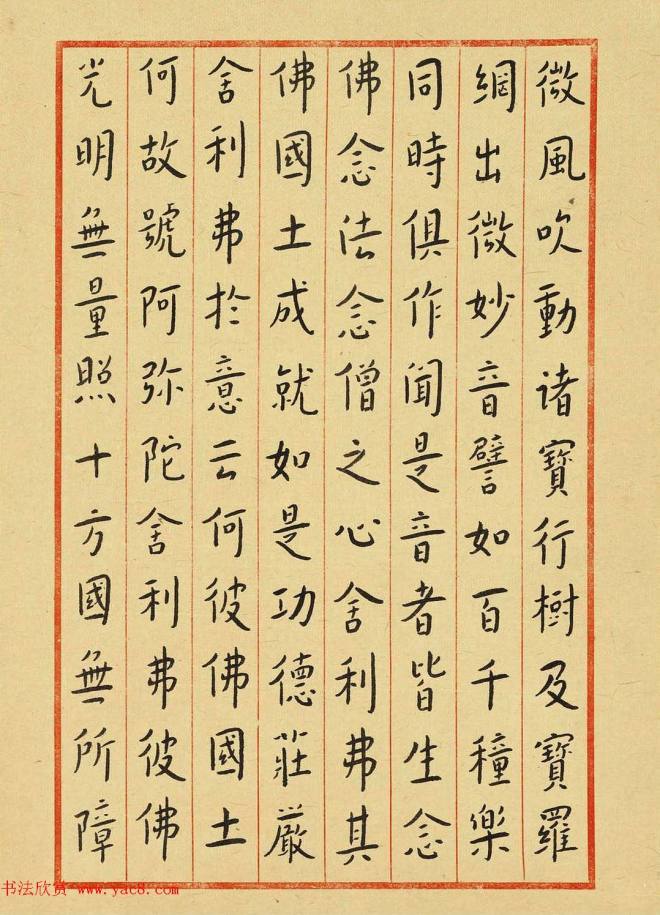 微風吹動诸寶行樹及寶羅
網出微妙音譬如百千種樂
同時俱作闻是音者皆生念
佛念法念僧之心舍利弗其
佛國土成就如是功德莊嚴
舍利弗於意云何彼佛國土
何故號阿弥陀舍利弗彼佛
光明無量照十方國無所障
书法欣赏 www.yac8.com